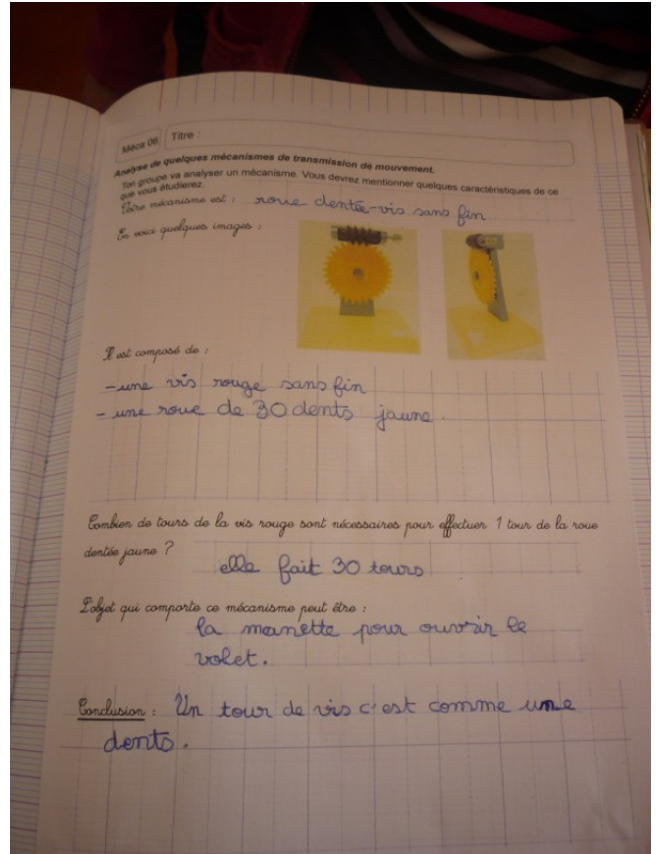 Méca 06 Titre :
Analyse de quelques mécanismes de transmission de mouvement.
Ton groupe va analyser un mécanisme. Vous devrez mentionner quelques caractéristiques de ce
que vous étudierez.
Votre mécanisme est : roue dentée-vis sans fin
En voici quelques images :
Il est composé de :
- une vis rouge sans fin
- une roue de 30 dents jaune.
Combien de tours de la vis rouge sont nécessaires pour effectuer 1 tour de la roue
dentée jaune ?
elle fait 30 tours
L'objet qui comporte ce mécanisme peut être :
la manette pour ouvrir le
volet.
Conclusion : Un tour de vis c'est comme une
dents.